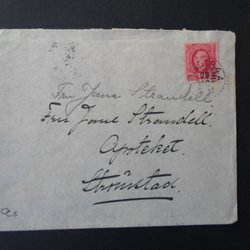 Fru Jane Strandell
Fru Jane Strandell
Apoteket
Strömstad